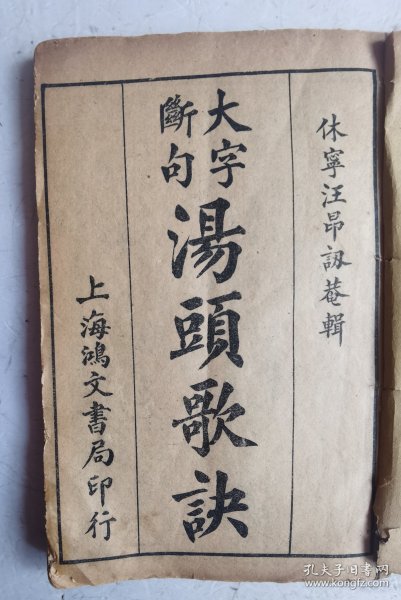 休寧汪昂訒菴輯
大字
斷句
湯頭歌訣
上海鴻文書局印行
孔夫子旧书网
www.kongfz.com